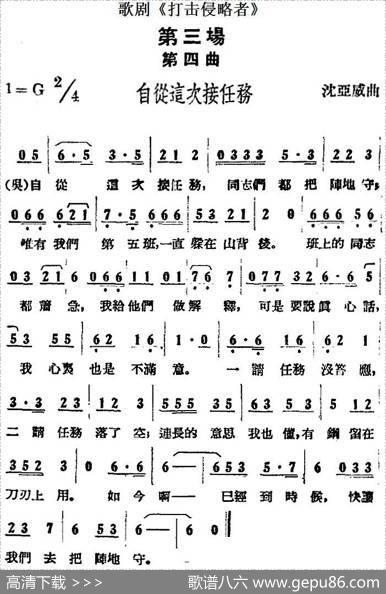 歌剧《打击侵略者》
第三場
第四曲
1=G 2/4 自從這次接任務 沈亞威曲
05 | 6·5 3·5 | 21 2 | 0333 5·3 | 22 3 |
(吳)自 從 這 次 接任務, 同志們 都 把 陣地 守;
066 621 | 7·5 666 | 53 21 | 2 066 | 666 56 |
唯有 我們 第 五班,一直 躲在 山背 後。 班上的 同志
03 21 | 6 066 | 11 101 | 76 7 | 077 32 | 6·6 5 |
都 着 急, 我給 他們 做解 釋, 可是 要說 眞心 話,
53 55 | 62 16 | 1·0 | 6·6 16 | 62 1 |
我 心裏 也是 不滿 意。 一請 任務 沒答 應,
3·3 23 | 53 5 | 035 23 | 03 53 | 5 12 |
二請 任務 落了 空; 連長的 意思 我也 懂, 有 鋼 留在
352 3 | 0 6·6 | 6— | 653 5·7 | 6 033 |
刀刃上 用。 如今 啊—— 已經 到 時 候, 快讓
23 7 | 6 53 | 6— | 6 0 ‖
我們 去 把 陣地 守。
高清下载 >>> 歌谱八六 www.gepu86.com